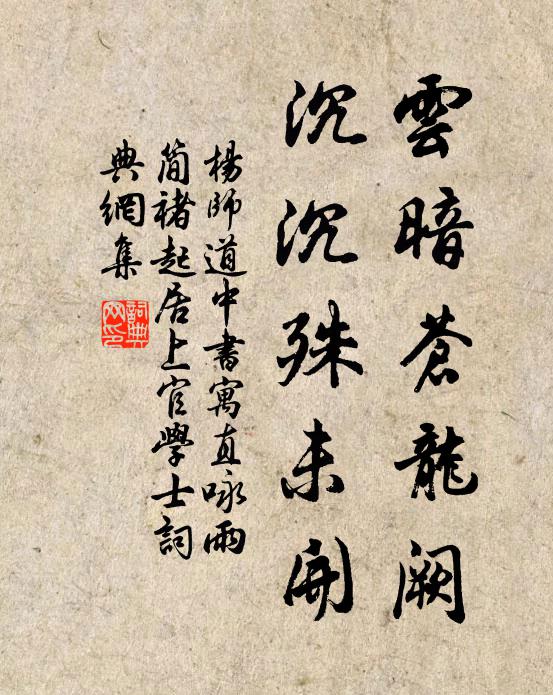 雲暗蒼龍闕
沉沉殊未開
楊師道中書寓直咏雨
简褚起居上官學士詞
典網集
詞典网印